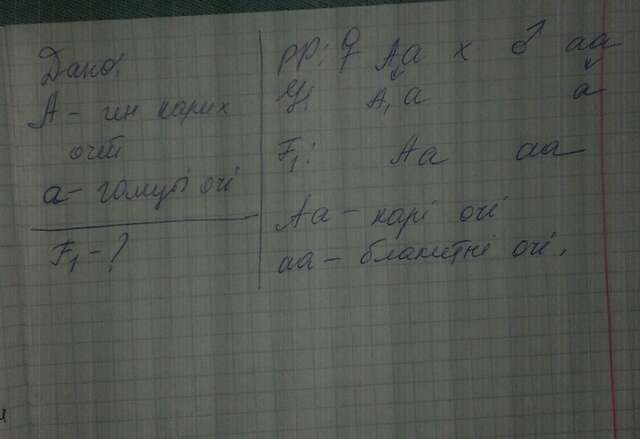 Дано:
А - ген карих
очей
а - голубі очі
F₁ - ?
РР: ♀ Аа х ♂ аа
G: А, а а
F₁: Аа аа
Аа - карі очі
аа - блакитні очі.